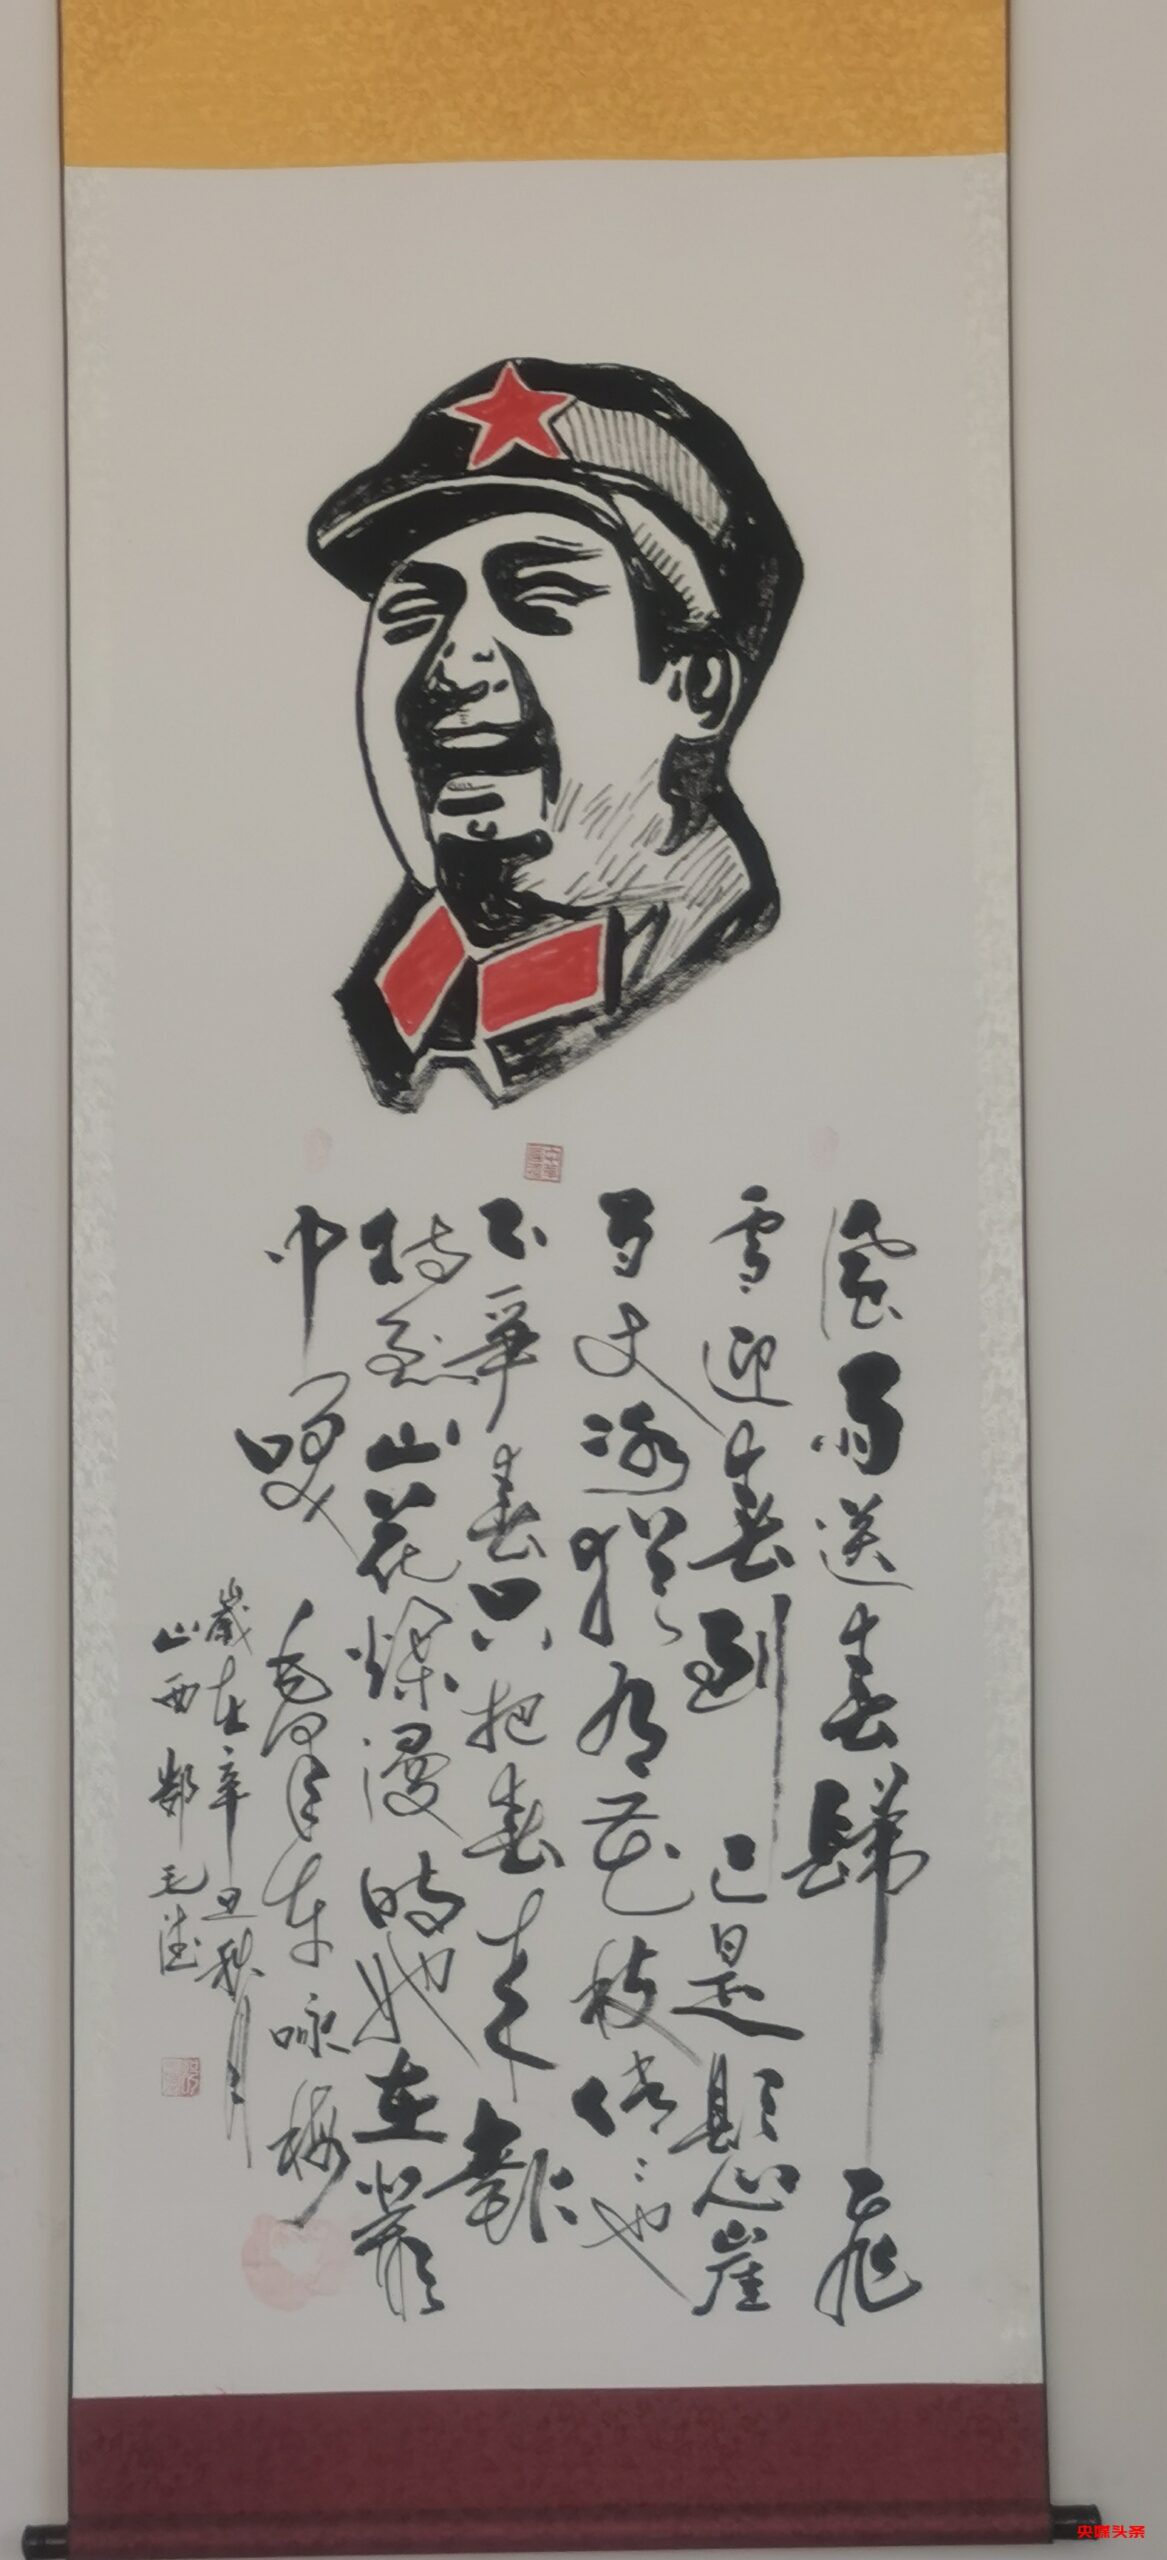 風雨送春歸飛
雪迎春到已是懸崖
百丈冰猶有花枝俏〻也
不爭春只把春来報
待到山花爛漫時她在叢
中咲
毛泽东咏梅
歲在辛丑秋月
山西
央媒头条